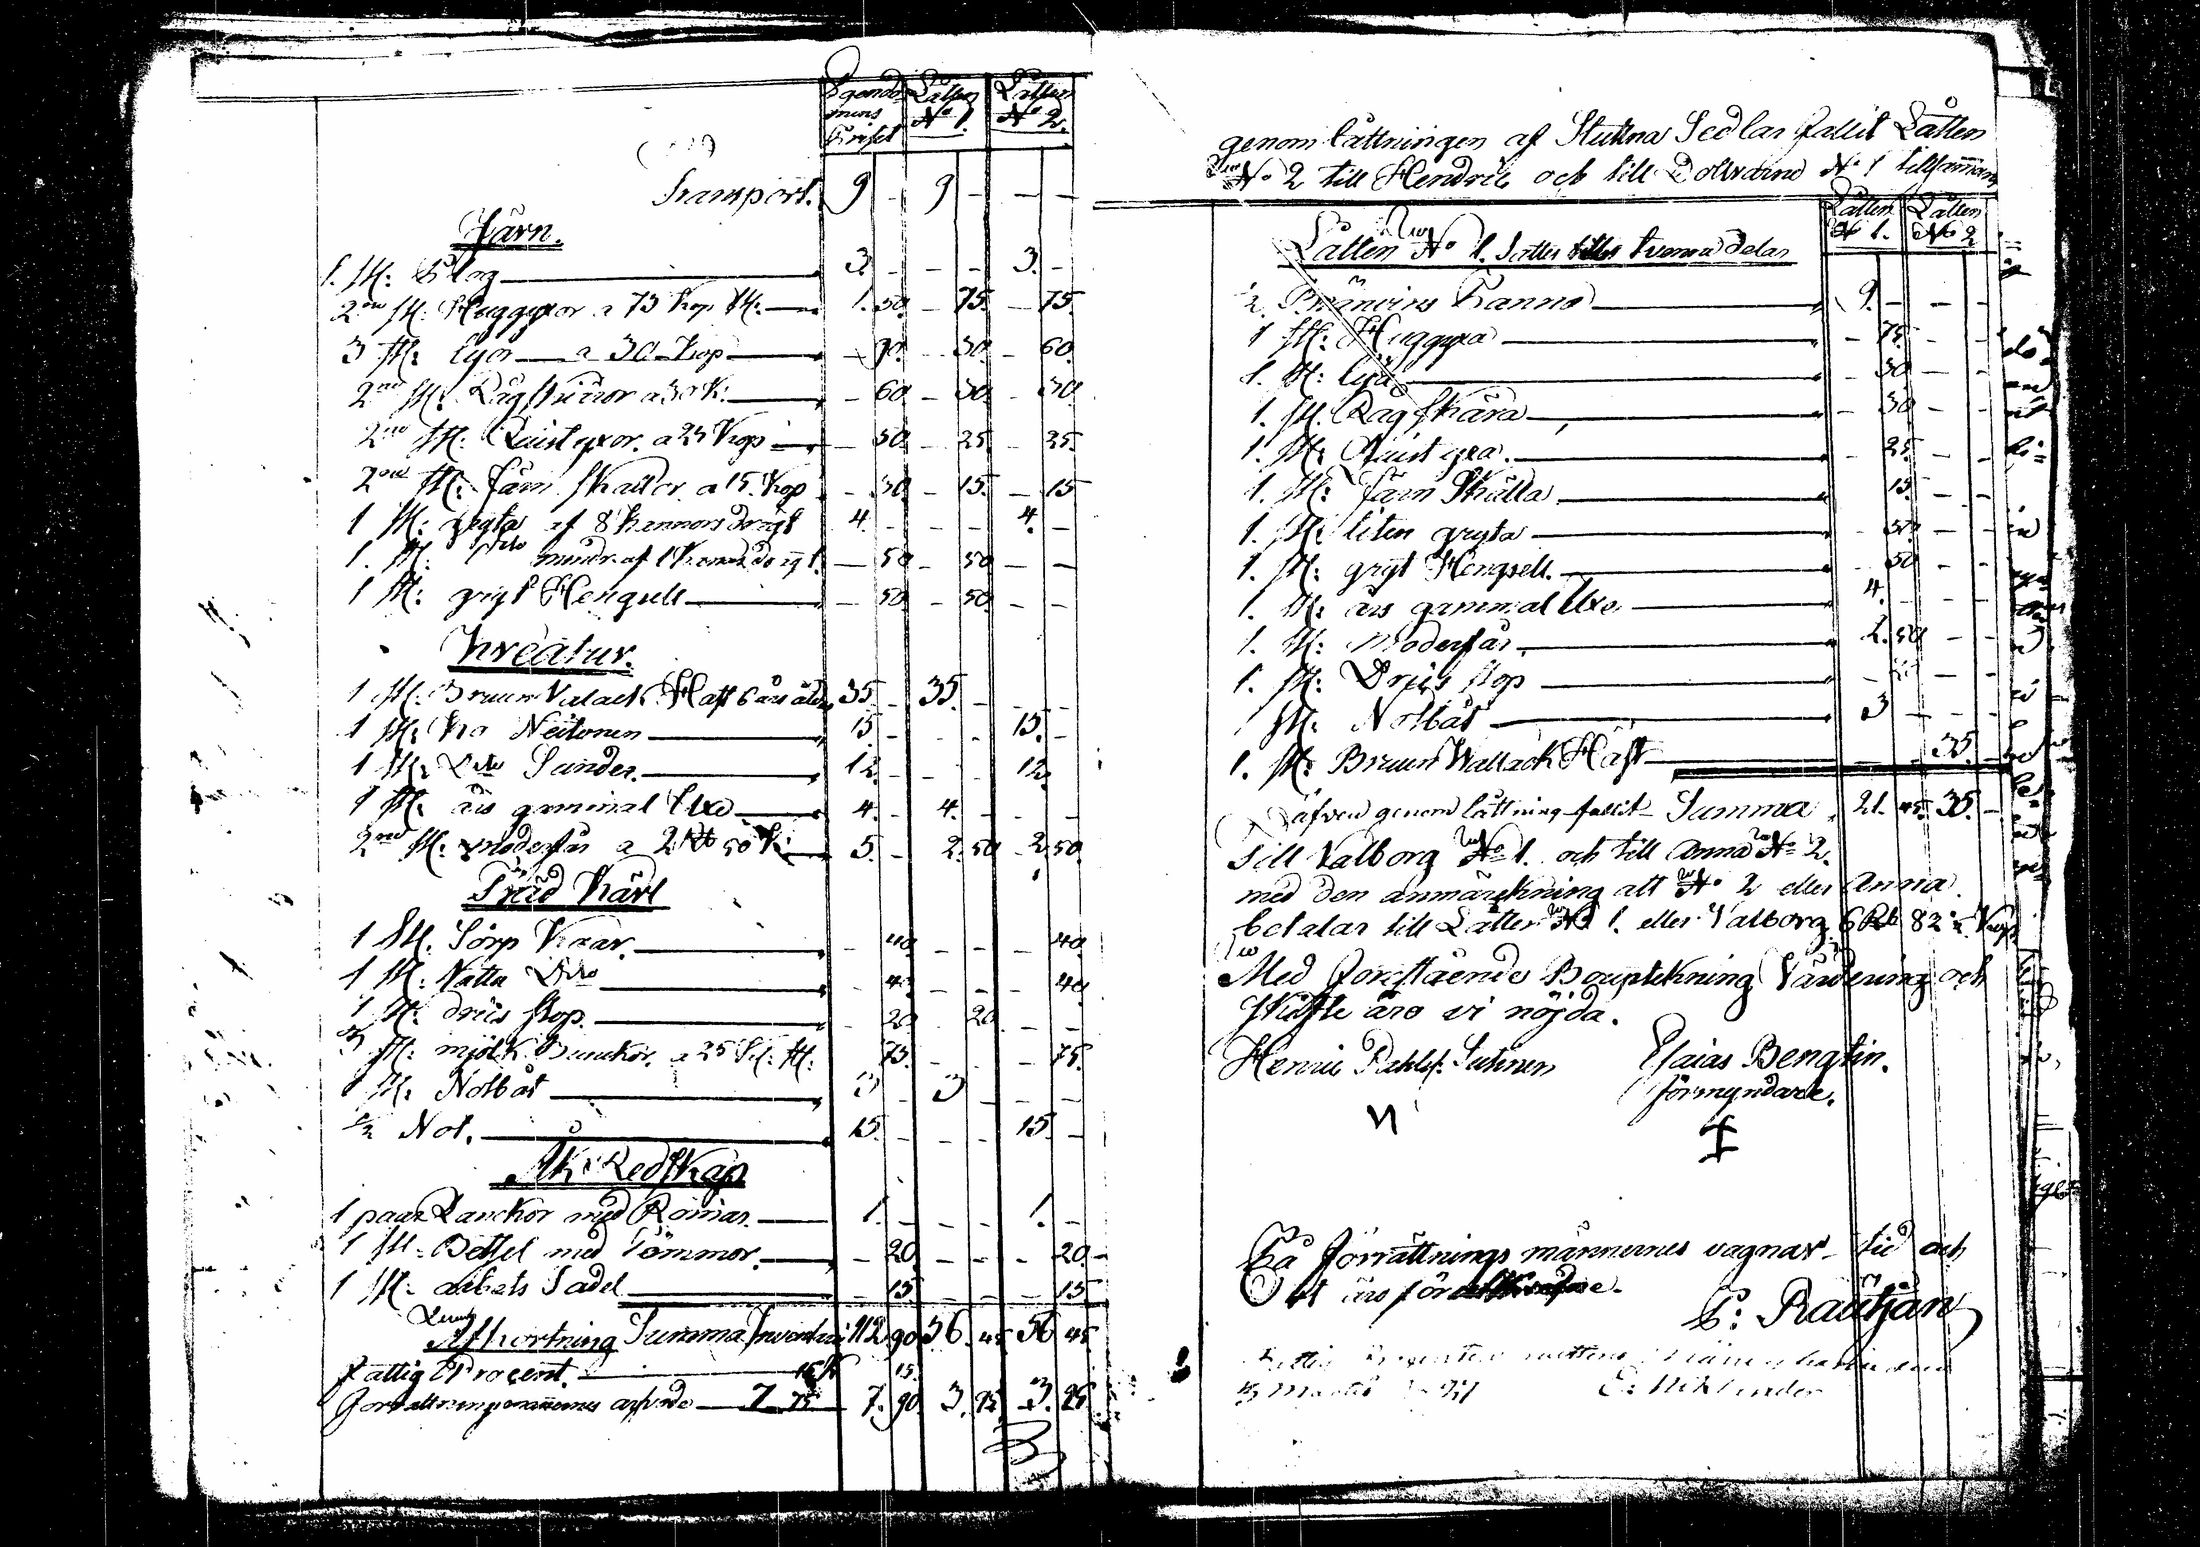 Egendo- Låtten Låtten
mens No 1. No 2.
Priset
Transport. 9 - 9 - - -
Järn.
1. St: Plog 3. - - - 3. -
2ne St: Huggyxor a 75 Kop St: 1. 50. - 75. - 75.
3 St: Lyor a 30 Kop - 90. - 30. - 60.
2ne St: Rågskäror a 30 K: - 60. - 30. - 30.
2ne St: Täistyxor a 25 Kop - 50. - 25. - 25.
2ne St: Järn Skällor a 15. Kop - 30. - 15. - 15
1 St: gryta af 8 Kannors drygt 4. - - - 4. -
1. St: Dito mindr. af 1 Kannas drygt. - 50 - 50 - -
1 St: gryt Hengsell - 50 - 50. - -
Kreatur.
1 St. Bruun Valack Häst 6 års ålder 35. - 35. - - -
1 St: Ko Neitonen 15 - - - 15. -
1 St: Dito Sunder. 12. - - - 12.
1 St: års gammal Oxe 4. - 4. - - -
2ne St: moderfår a 2 Rb 50 K: 5. - 2. 50. 2. 50.
Träd Kärl
1 St. Sörp Kaar. - 40. - - - 40.
1 St: Natta Dito - 40. - - - 40.
1 St: driks stop. - 20. - 20. - -
3 St: mjölk Bunckor. a 25 K: St: 75. - - - 75.
1 St: Notbåt 3 3 - - -
1/2 Not. 15. - - - 15. -
Åk Redskap
1 paar Lanckor med Romar. 1. - - - 1. -
1 St: Betsel med Tömmar. - 20. - - - 20. -
1 St: arbets Sadel - 15. - - - 15
Afkortning Summa Inventarii 112 90 56. 45 56 45
fattig Procent. 15 K 15.
förrättningsmännernes arfvode 7 75 7. 90. 3. 95. 3. 95.
genom låttningen af Slutna Sedlar fallit Låtten
No 2 till Hendric och till Dottrarne No 1 tillsammans
Låtten Låtten
No 1. No 2
Låtten No 1. satter tvenne delar
1/2 Bränvins Panna 9. - - -
1 St: Huggyxa - 75. - -
1. St: Lyä - 30 - -
1. St. Rågskära - 30 - -
1. St: Täistyxa. - 25. - -
1. St: Järn Skälla - 15. - -
1. St: liten gryta - 50. - -
1. St: gryt Hengsell. - 50 - -
1. St: års gammal Oxe 4. - - -
1. St: Moderfår. 2. 50 - -
1. St: Driks stop - 20 - -
1 St: Notbåt 3 - - -
1. St: Bruun Wallack Häst - - 35. -
äfven genom låttning fallit Summa 21. 45. 35. -
Till Valborg No 1. och till Anna No 2.
med den anmärckning att No 2 eller Anna
betalar till Låtten No 1. eller Valborg 6 Rb 82 1/2 Kop
Med förestående Boupteckning Värdering och
skifte äro vi nöjda.
Henric Suhnen Esaias Bengtin.
förmyndare.
På förrättnings männernes vagnar
P: Rautjan